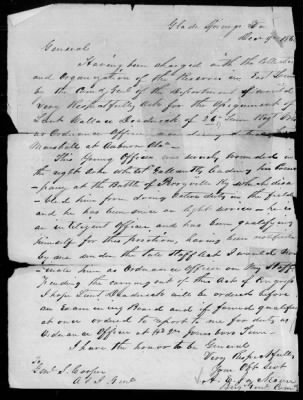 Glade Springs Va
Nov 9th 186
General
Having been charged with the Collection
and Organization of the Reserves in East Tenn
by the Comdg Genl of the Department I would
Very Respectfully Ask for the Assignment of
Lieut Wallace of 26th Tenn Regt
as Ordnance Officer now doing duty
Marshall at Auburn Ala
This Young Officer was severely wounded in
the right Arm whilst Gallantly leading his Com
pany at the Battle of Perryville Ky which disa
bled him from doing active duty in the field
and he has been since on light service - he is
an intelligent Officer and has been qualifying
himself for this position, having been
by me under the late Staff Act I would
nate him as Ordnance Officer on my Staff.
Pending the carrying out of this Act of Congress
I hope Lieut will be ordered before
an Examining Board and if found qualified
at once ordered to report to me for duty as
Ordnance Officer at Jonesboro Tenn.
I have the honor to be General
Very Respectfully
Your Obt Servt
To
Genl S. Cooper
A & I Genl
Brig Genl Comdg